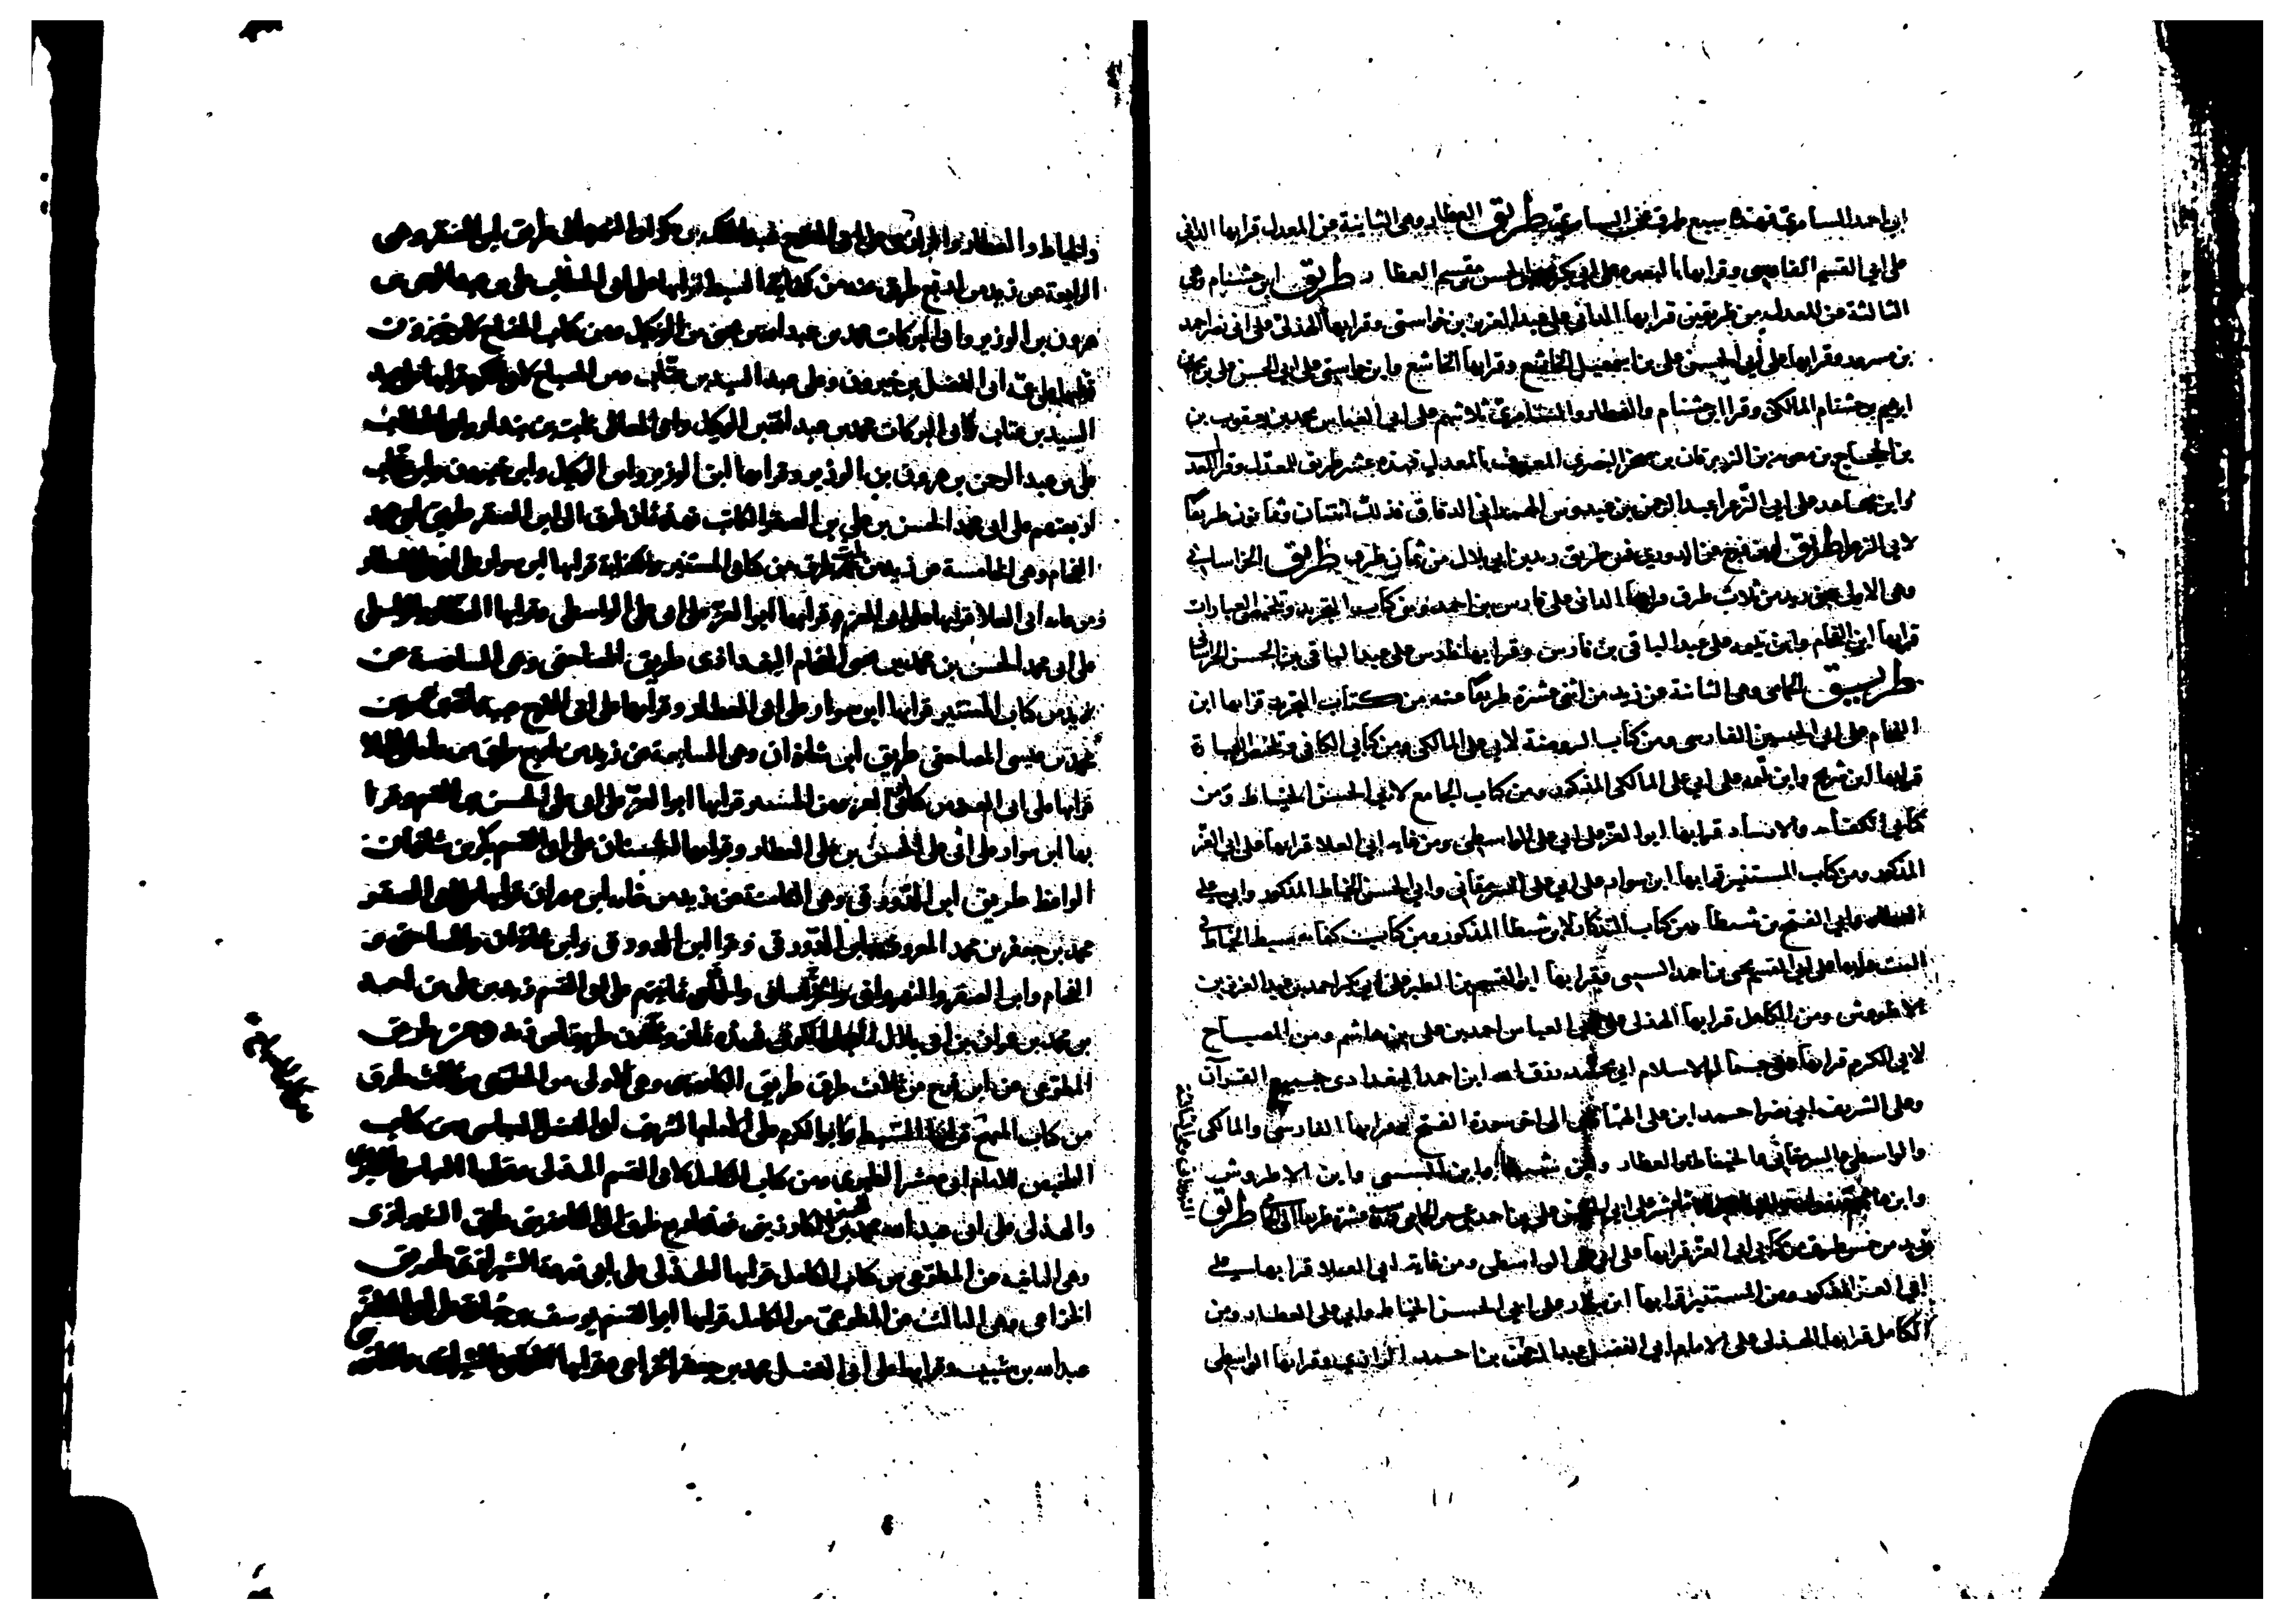 ابي احمد السامري فهذه سبع طرق عن السامري طريق العطار وهي الثانية عن المعدل قرابها الداني
على ابي القسم الفارسي وقرابها بالبصره على ابي بن مقسم العطار طريق ابن خشنام وهي
الثالثة عن المعدل من طريقين قرابها الداني على عبد العزيز بن خواستي وقرابها الهذلي على ابي نصر احمد
بن مسرور وقرابها على ابي الحسين علي بن اسمعيل الخاشع وقرابها الخاشع وابن خواستي على ابي الحسن علي بن محمد
ابرهيم بن خشنام المالكي وقرا ابن خشنام والعطار والسامري ثلاثتهم على ابي العباس محمد بن يعقوب بن
بن الحجاج بن معويه بن الزبرقان بن صخر البصري المعروف بالمعدل فهذه عشر طريق للمعدل وقرا المعدل
وابن مجاهد على ابي الزعرا عبد الرحمن بن عبدوس الهمداني الدقاق فذلك اثنتان وثمانون طريقا
لابي الزعرا طريق ابن فرح عن الدوري فمن طريق زيد بن ابي بلال من ثمان طرق طريق الخراساني
وهي الاولى عن زيد من ثلاث طرق قرابها الداني على فارس بن احمد ومن كتاب التجريد وتلخيص العبارات
قرابها ابن الفحام وابن بليمه على عبد الباقي بن فارس وقرابها فارس على عبد الباقي بن الحسن الخراساني
طريق الحمامي وهي الثانية عن زيد من اثنى عشرة طريقا عنه من كتاب التجريد قرابها ابن
الفحام على ابي الحسين الفارسي ومن كتاب الروضة لابي علي المالكي ومن كتابي الكافي وتلخيص
قرابها ابن شريح وابن بليمه على ابي علي المالكي المذكور ومن كتاب الجامع لابي الحسن الخياط ومن
كتابي الكفاية والارشاد قرابها ابو العز على ابي علي الواسطي ومن غايه ابي العلا قرابها على ابي العز
المذكور ومن كتاب المستنير قرابها ابن سوار على ابي علي الشرمقاني وابي الحسن الخياط المذكور وابي علي
العطار وابي الفتح بن شيطا ومن كتاب التذكار لابن شيطا المذكور ومن كتابي كفايه سبط الخياط
على ابي القسم يحيى بن احمد السيبي وقرابها ابو القسم بن الطبر على ابي بكر احمد بن عبد العزيز بن
الاطروش ومن الكامل قرابها الهذلي على ابي العباس احمد بن علي بن هاشم ومن المصباح
لابي الكرم قرابها على جمال الاسلام ابي محمد رزق الله ابن احمد البغدادي جميع القرآن
وعلى الشريف ابي نصر احمد ابن علي الهباري الى اخر سورة الفتح وقرابها الفارسي والمالكي
والواسطي والشرمقاني والخياط والعطار وابن شيطا وابن السيبي وابن الاطروش
وابن هاشم على ابي الحسن علي بن احمد بن عمر الحمامي عشرة طريقا طريق
النهرواني وهي الثالثة
زيد من خمس طرق من كتابي ابي العز قرابها على ابي علي الواسطي ومن غايه ابي العلا قرابها على
ابي العز المذكور ومن المستنير قرابها ابن سوار على ابي الحسن الخياط وابي علي العطار ومن
الكامل قرابها الهذلي على الامام ابي الفضل عبد الرحمن بن احمد الرازي وقرابها الواسطي
والخياط والعطار والرازي على ابي الفرج عبد الملك بن بكران النهرواني طريق ابن الصقر وهي
الرابعة عن زيد من اربع طرق عنه من كفاية السبط قرابها على ابي الخطاب علي بن عبد الرحمن بن
هرون بن الوزير وابي البركات محمد بن عبد الله بن يحيى بن الوكيل ومن كتاب المفتاح لابن خيرون
قرابها على عمه ابي الفضل بن خيرون وعلى عبد السيد بن عتاب ومن المصباح لابي الكرم قرابها على عبد
السيد بن عتاب وابي البركات محمد بن عبد الله بن الوكيل وابي المعالي ثابت بن بندار وابي الخطاب
علي بن عبد الرحمن بن هرون بن الوزير وقرابها ابن الوزير وابن الوكيل وابن خيرون وابن عتاب
اربعتهم على ابي محمد الحسن بن علي بن الصقر الكاتب فهذه ثمان طرق الى ابن الصقر طريق ابي محمد
الفحام وهي الخامسة عن زيد من طرق من كتابي المستنير والكفاية قرابها ابن سوار على ابي علي العطار
ومن غايه ابي العلا قرابها على ابي العز وقرابها ابو العز على ابي علي الواسطي وقرابها العطار والواسطي
على ابي محمد الحسن بن محمد بن يحيى الفحام البغدادي طريق المصاحفي وهي السادسة عن
زيد من كتاب المستنير قرابها ابن سوار على ابي العطار وقرابها على ابي الفرج عبيد الله بن عمر بن
محمد بن عيسى المصاحفي طريق ابن شاذان وهي السابعة عن زيد من اربع طرق من غايه ابي العلا
قرابها على ابي العز ومن كتابي ابي العز ومن المستنير وقرابها ابو العز على ابي علي الحسن بن القسم وقرا
بها ابن سوار على ابي علي الحسن بن علي العطار وقرابها الحسنان على ابي القسم بكر بن شاذان
الواعظ طريق ابن الدورقي وهي الثامنة عن زيد من غايه ابن مهران قرابها على ابي الصقر
محمد بن جعفر بن محمد المعروف بابن الدورقي وقرا ابن الدورقي وابن شاذان والمصاحفي و
الفحام وابن الصقر والنهرواني والخراساني والحمامي ثمانيتهم على ابي القسم زيد بن علي بن احمد
بن محمد بن عمران بن ابي بلال الكوفي فهذه ثمان وثلاثون طريقا عن زيد ومن طريق
المطوعي عن ابن فرح من ثلاث طرق طريق الكارزيني وهي الاولى عن المطوعي من ثلاث طرق
من كتاب المبهج قرابها السبط وابو الكرم على الشريف ابي الفضل العباسي ومن كتاب
التلخيص للامام ابي معشر الطبري ومن كتاب الكامل لابي القسم الهذلي
والهذلي على ابي عبد الله محمد بن الحسين الكارزيني فهذه اربع طرق الى الكارزيني طريق الشيرازي
وهي الثانيه عن المطوعي من كتاب الكامل قرابها الهذلي على ابي زرعة الشيرازي طريق
الخزاعي وهي الثالثة عن المطوعي من الكامل قرابها ابو القسم يوسف بن جبارة على ابي المظفر
عبد الله بن شبيب وقرابها على ابي الفضل محمد بن جعفر الخزاعي وقرابها